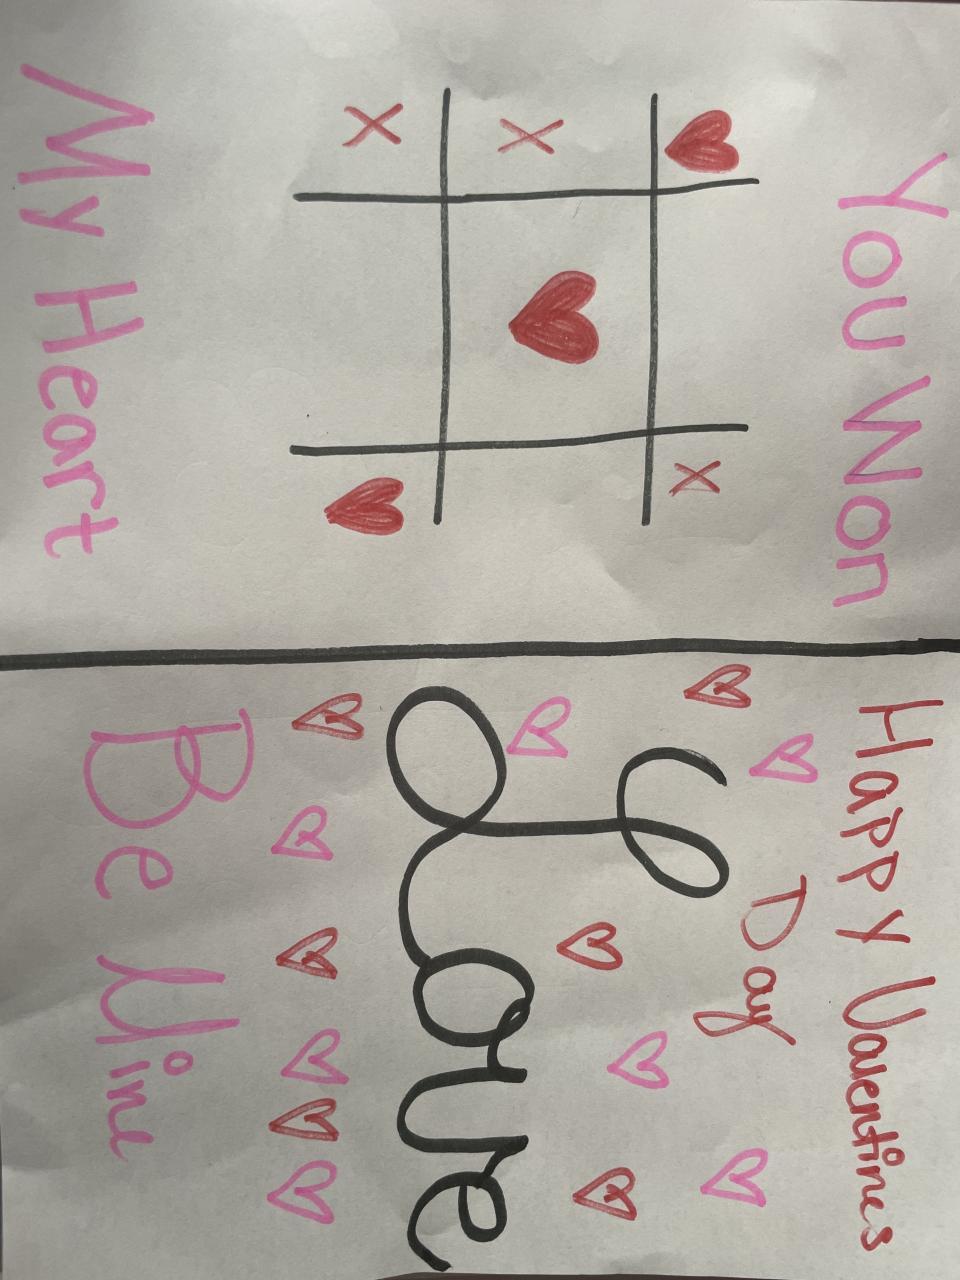 You Won
X
X
X
My Heart
Happy Valentines
Day
Love
Be Mine